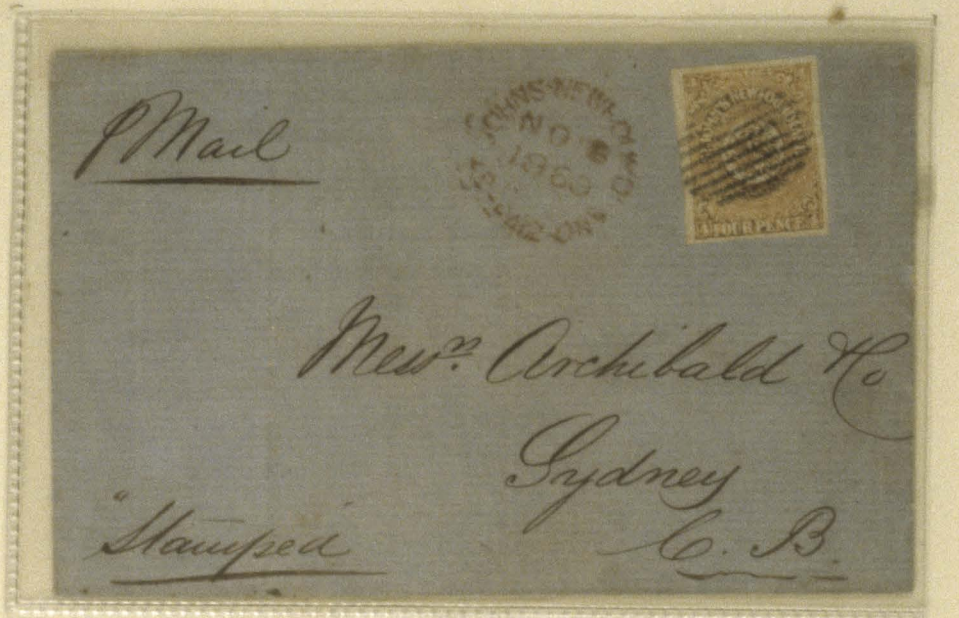 p Mail
ST. JOHNS-NEWFOUNDLAND
PAID
NO 8
1860
FOUR PENCE
Messrs. Archibald & Co
Sydney
C. B.
"Stamped"